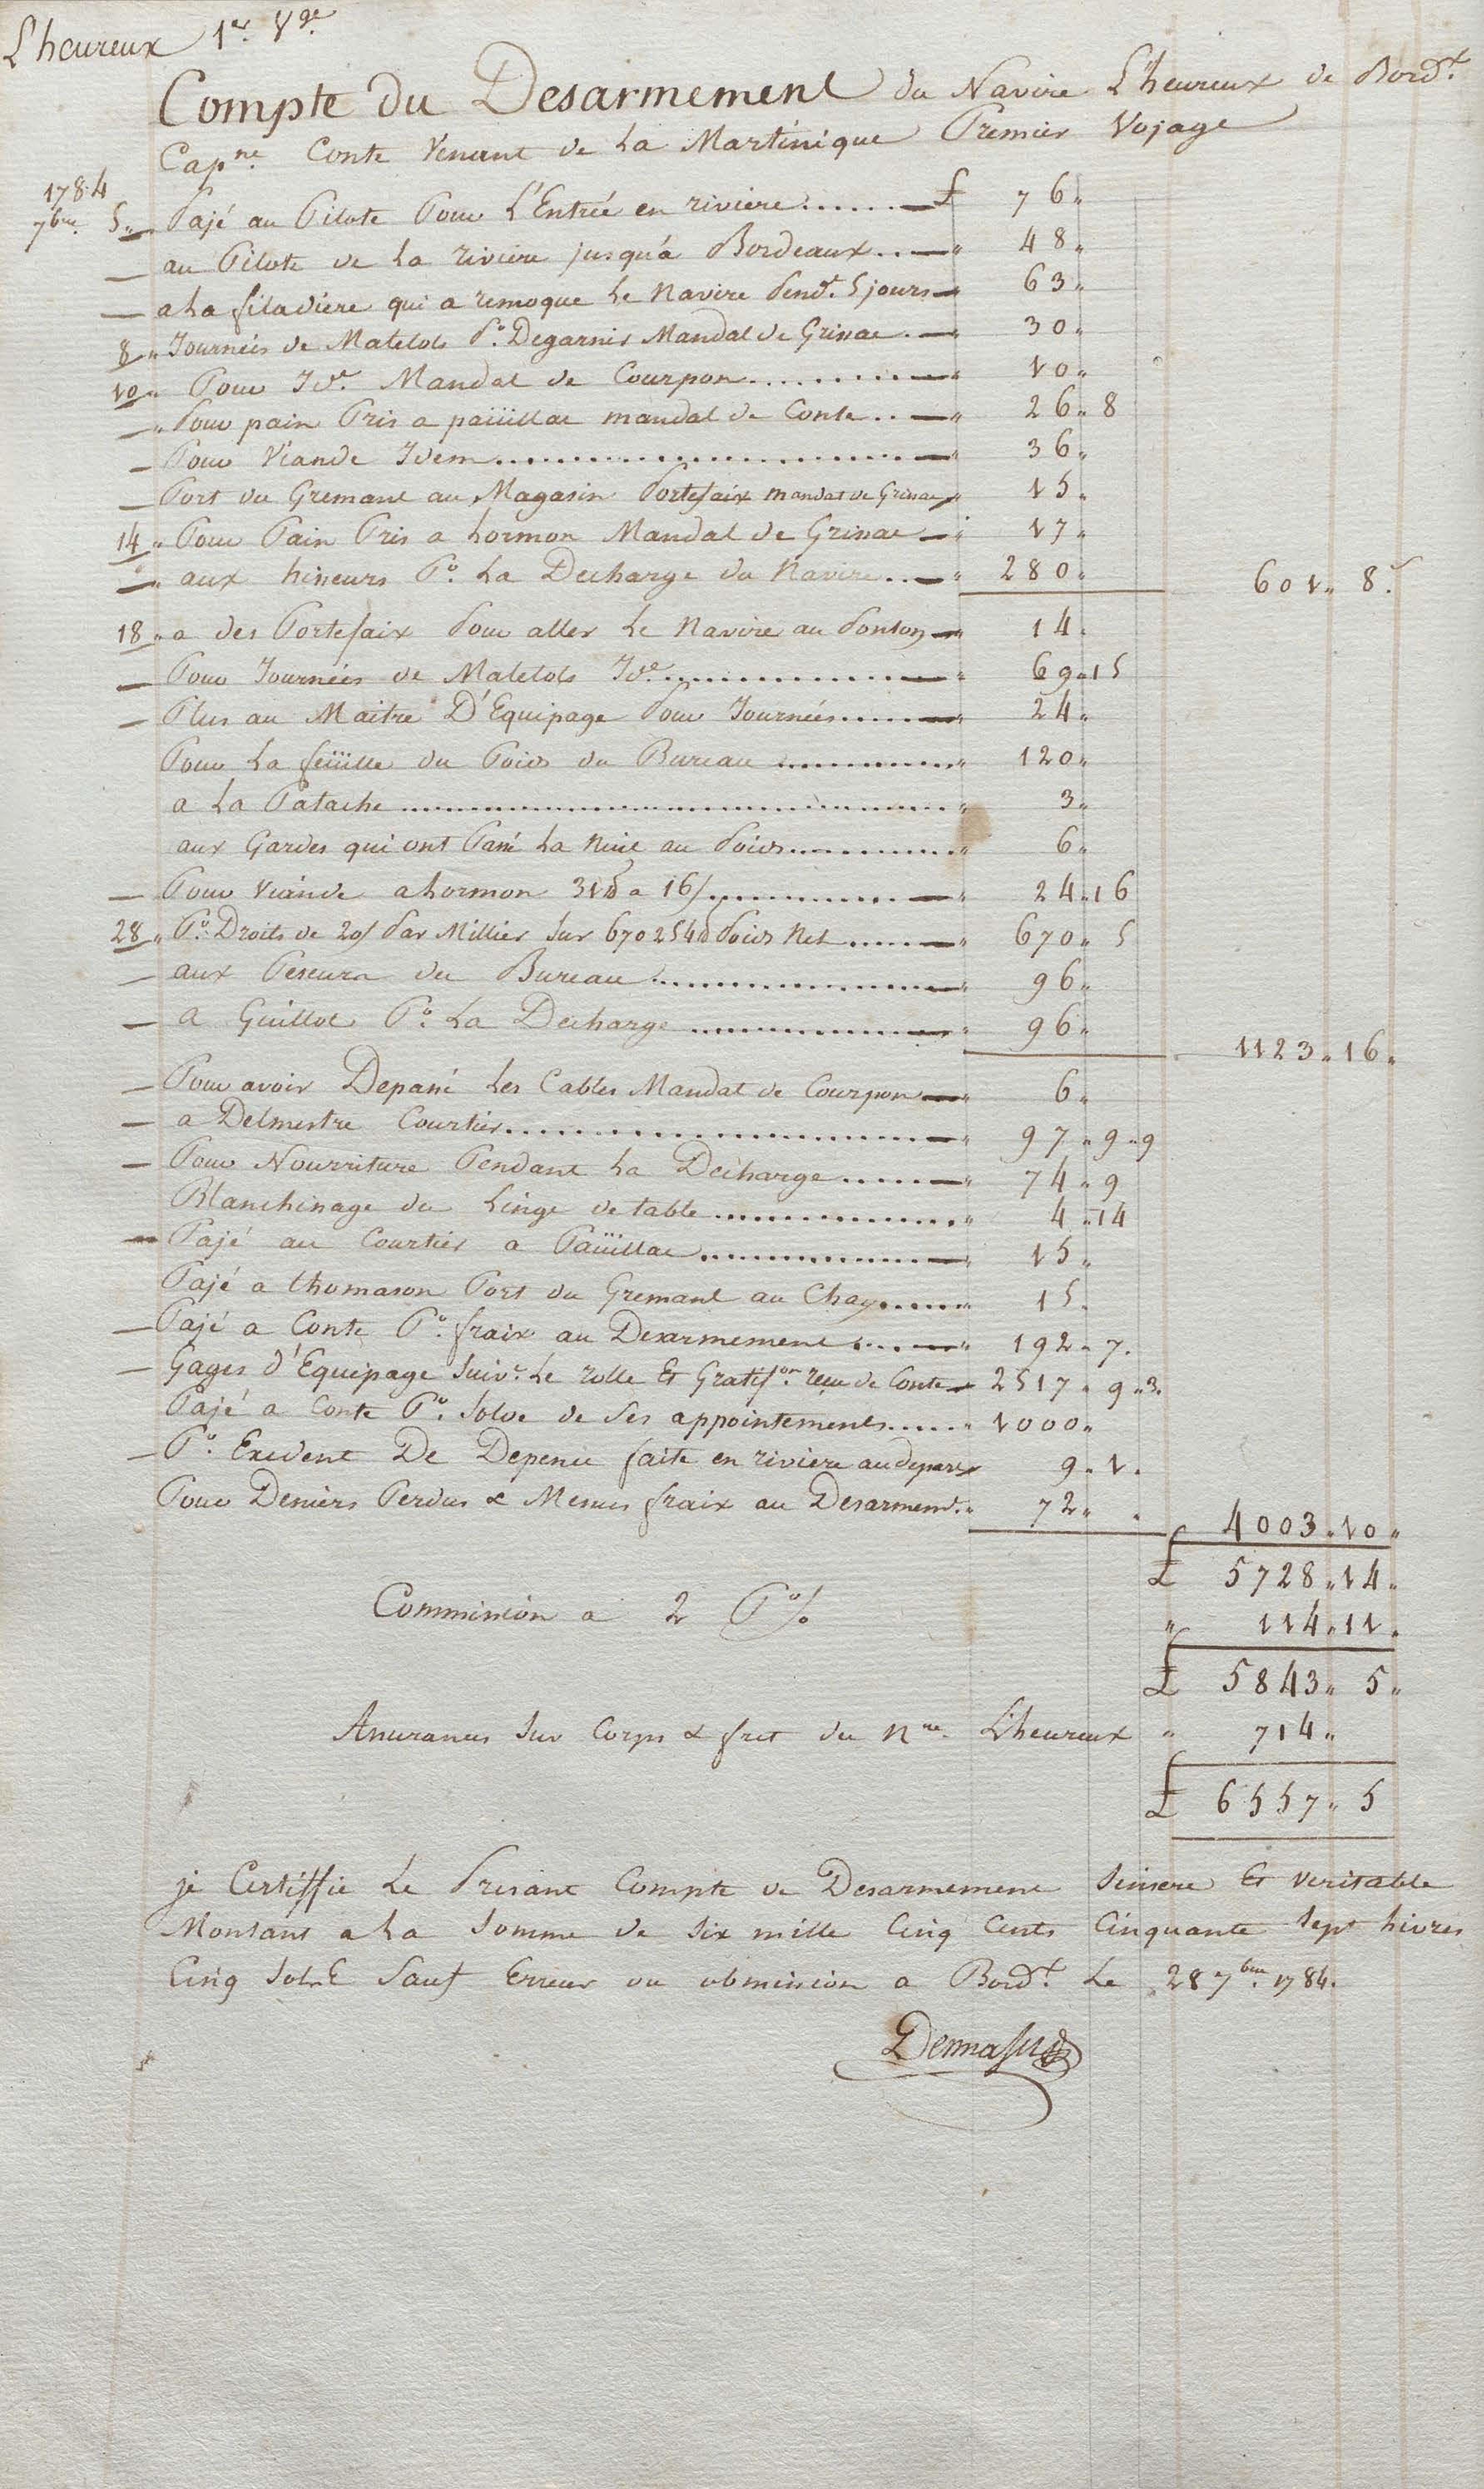 L'heureux 1er. Vge.
Compte du Desarmement du Navire L'heureux de Bordx.
Capne. Conte Venant de La Martinique Premier Voyage
1784
7bre. 5 „ Pajé au Pilote Pour L'Entrée en riviere ...... £ 76 „
— au Pilote de La riviere jusqu'a Bordeaux .. — „ 48 „
— a La filadiere qui a remoque Le Navire Pendt. 5 jours — 63 „
8 „ Journeés de Matelots Po. Degarnir Mandat de Grinac . — „ 30 „
10 „ Pour Ide. Mandat de Courpon .......... — „ 10 „
— „ Pour pain Pris a paüillac mandat de Conte .. — „ 26 „ 8
— Pour Viande Idem .................... — „ 36 „
— Port du Gremant au Magasin Portefaix mandat de Grinac „ 15 „
14 „ Pour Pain Pris a Lormon Mandat de Grinac — „ 17 „
— „ aux Lineurs Po. La Decharge du Navire .. — „ 280 „
601 „ 8 s
18 „ a des Portefaix Pour aller Le Navire au Ponton — „ 14 .
— Pour Journeés de Matelots Ide. ............... — „ 69 „ 15
— Plus au Maitre D'Equipage Pour Journeés ...... — „ 24 „
Pour La feüille du Poids du Bureau ............. „ 120 „
a La Patache .............................. „ 3 „
aux Gardes qui ont Passé La Nuit au Poids ............. „ 6 „
— Pour Viande a Lormon 31 lb a 16/ ............... — „ 24 „ 16
28 „ Po. Droits de 20/ Par Millier Sur 670254 lb Poids Net ...... — „ 670 „ 5
— aux Peseurs du Bureau .................. — „ 96 „
— a Guillot Po. La Decharge ............... — „ 96 „
1123 „ 16 „
— Pour avoir Depassé Les Cables Mandat de Courpon — „ 6 „
— a Delmestre Courtier .................. — „ 97 „ 9 „ 9
— Pour Nourriture Pendant La Decharge ...... — „ 74 „ 9
Blanchissage du Linge de table ................ „ 4 „ 14
— Pajé au Courtier a Paüillac ............... — „ 15 „
Pajé a thomason Port du Gremant au Chay ...... „ 15 .
— Pajé a Conte Po. fraix au Desarmement ...... — „ 192 „ 7 .
— Gages d'Equipage Suivt. Le rolle Et Gratifon. reçu de Conte — 2517 „ 9 „ 3 .
Pajé a Conte Po. Solde de Ses appointements ..... „ 1000 „
— Po. Exedent De Depense faite en riviere au depart „ 9 „ 1 .
Pour Deniers Perdus & Menus fraix au Desarmemt. „ 72 „ „
4003 „ 10 „
£ 5728 „ 14 „
Commission a 2 Po/o „ 114 „ 11 .
£ 5843 „ 5 „
Assurances Sur Corps & fret du Nre. L'heureux „ 714 „
£ 6557 „ 5
je Certiffie Le Presant Compte de Desarmement Sinsere Et veritable
Montant a La Somme de Six mille Cinq Cents Cinquante Sept Livres
Cinq Sols Sauf Erreur ou obmission a Bordx. Le 28 7bre. 1784.